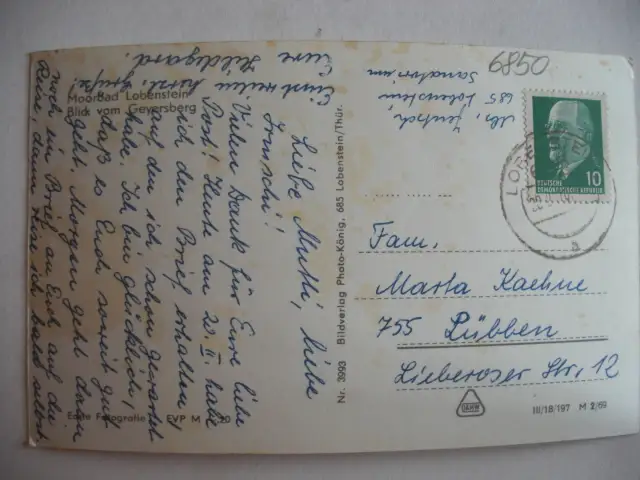 Moorbad Lobenstein
Blick vom Geyersberg
Liebe Mutti, liebe
Vielen Dank für Eure liebe
Post! Heute am 20. II. habe
ich den Brief erhalten
auf den ich schon gewartet
habe. Ich bin glücklich,
daß es Euch soweit gut
geht. Morgen geht dann
noch ein Brief an Euch auf die
Reise, dann
Einstweilen herzl. Grüße!
Eure Hildegard.
Echte Fotografie EVP M
Nr. 3693 Bildverlag Photo-König, 685 Lobenstein/Thür.
Abs.
685 Lobenstein
Sanatorium
6850
10
DEUTSCHE
DEMOKRATISCHE REPUBLIK
Fam.
Marta Kaehne
755 Lübben
Lieberoser Str. 12
III/18/197 M 2/69